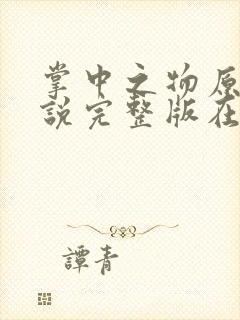 掌中之物原
說完整版在
譚青